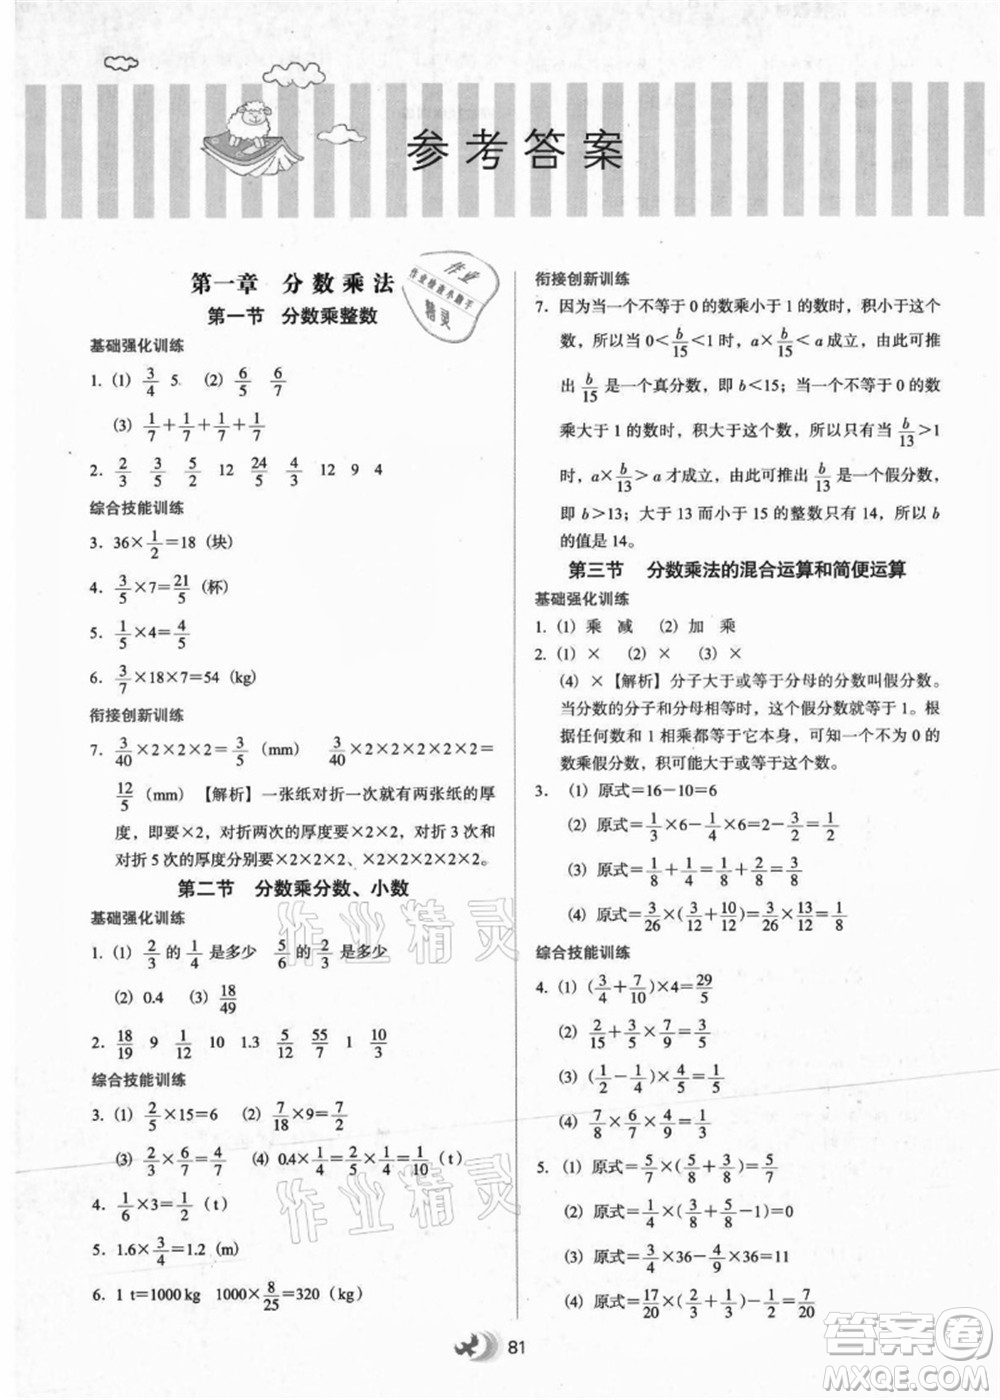 参考答案
第一章 分数乘法
第一节 分数乘整数
基础强化训练
1. (1) 3/4 5 (2) 6/5 6/7
(3) 1/7+1/7+1/7+1/7
2. 2/3 3/5 5/2 12 24/5 4/3 12 9 4
综合技能训练
3. 36×1/2=18 (块)
4. 3/5×7=21/5 (杯)
5. 1/5×4=4/5
6. 3/7×18×7=54 (kg)
衔接创新训练
7. 3/40×2×2×2=3/5 (mm) 3/40×2×2×2×2×2=
12/5 (mm) 【解析】一张纸对折一次就有两张纸的厚
度，即要×2，对折两次的厚度要×2×2，对折 3 次和
对折 5 次的厚度分别要×2×2×2、×2×2×2×2×2。
第二节 分数乘分数、小数
基础强化训练
1. (1) 2/3 的 1/4 是多少 5/6 的 2/3 是多少
(2) 0.4 (3) 18/49
2. 18/19 9 1/12 10 1.3 5/12 55/7 1 1/10
综合技能训练
3. (1) 2/5×15=6 (2) 7/18×9=7/2
(3) 2/3×6/7=4/7 (4) 0.4×1/4=2/5×1/4=1/10 (t)
4. 1/6×3=1/2 (t)
5. 1.6×3/4=1.2 (m)
6. 1 t=1000 kg 1000×8/25=320 (kg)
衔接创新训练
7. 因为当一个不等于 0 的数乘小于 1 的数时，积小于这个
数，所以当 0<b/15<1 时，a×b/15<a 成立，由此可推
出 b/15 是一个真分数，即 b<15；当一个不等于 0 的数
乘大于 1 的数时，积大于这个数，所以只有当 b/13>1
时，a×b/13>a 才成立，由此可知 b/13 是一个假分数，
即 b>13；大于 13 而小于 15 的整数只有 14，所以 b
的值是 14。
第三节 分数乘法的混合运算和简便运算
基础强化训练
1. (1) 乘 减 (2) 加 乘
2. (1) × (2) × (3) ×
(4) × 【解析】分子大于或等于分母的分数叫假分数。
当分数的分子和分母相等时，这个假分数就等于 1。根
据任何数和 1 相乘都等于它本身，可知一个不为 0 的
数乘假分数，积可能大于或等于这个数。
3. (1) 原式=16-10=6
(2) 原式=1/3×6-1/4×6=2-3/2=1/2
(3) 原式=1/8+1/4=3/8
(4) 原式=3/26×(3/12+10/12)=1/8
综合技能训练
4. (1) (3/4+7/10)×4=29/5
(2) 2/15+3/5×7/9=3/5
(3) (1/2-1/4)×4/5=1/5
(4) 7/8×6/7×2/9=1/6
5. (1) 原式=5/7×(5/8+3/8)=5/7
(2) 原式=1/4×(3/8+5/8-1)=0
(3) 原式=5/9×36-1/4×36=11
(4) 原式=17/20×(2/3+1/3)-1/2=7/20
81
作业
作业检查小助手
精灵
作业精灵
作业精灵
答案圈
MXQE.COM